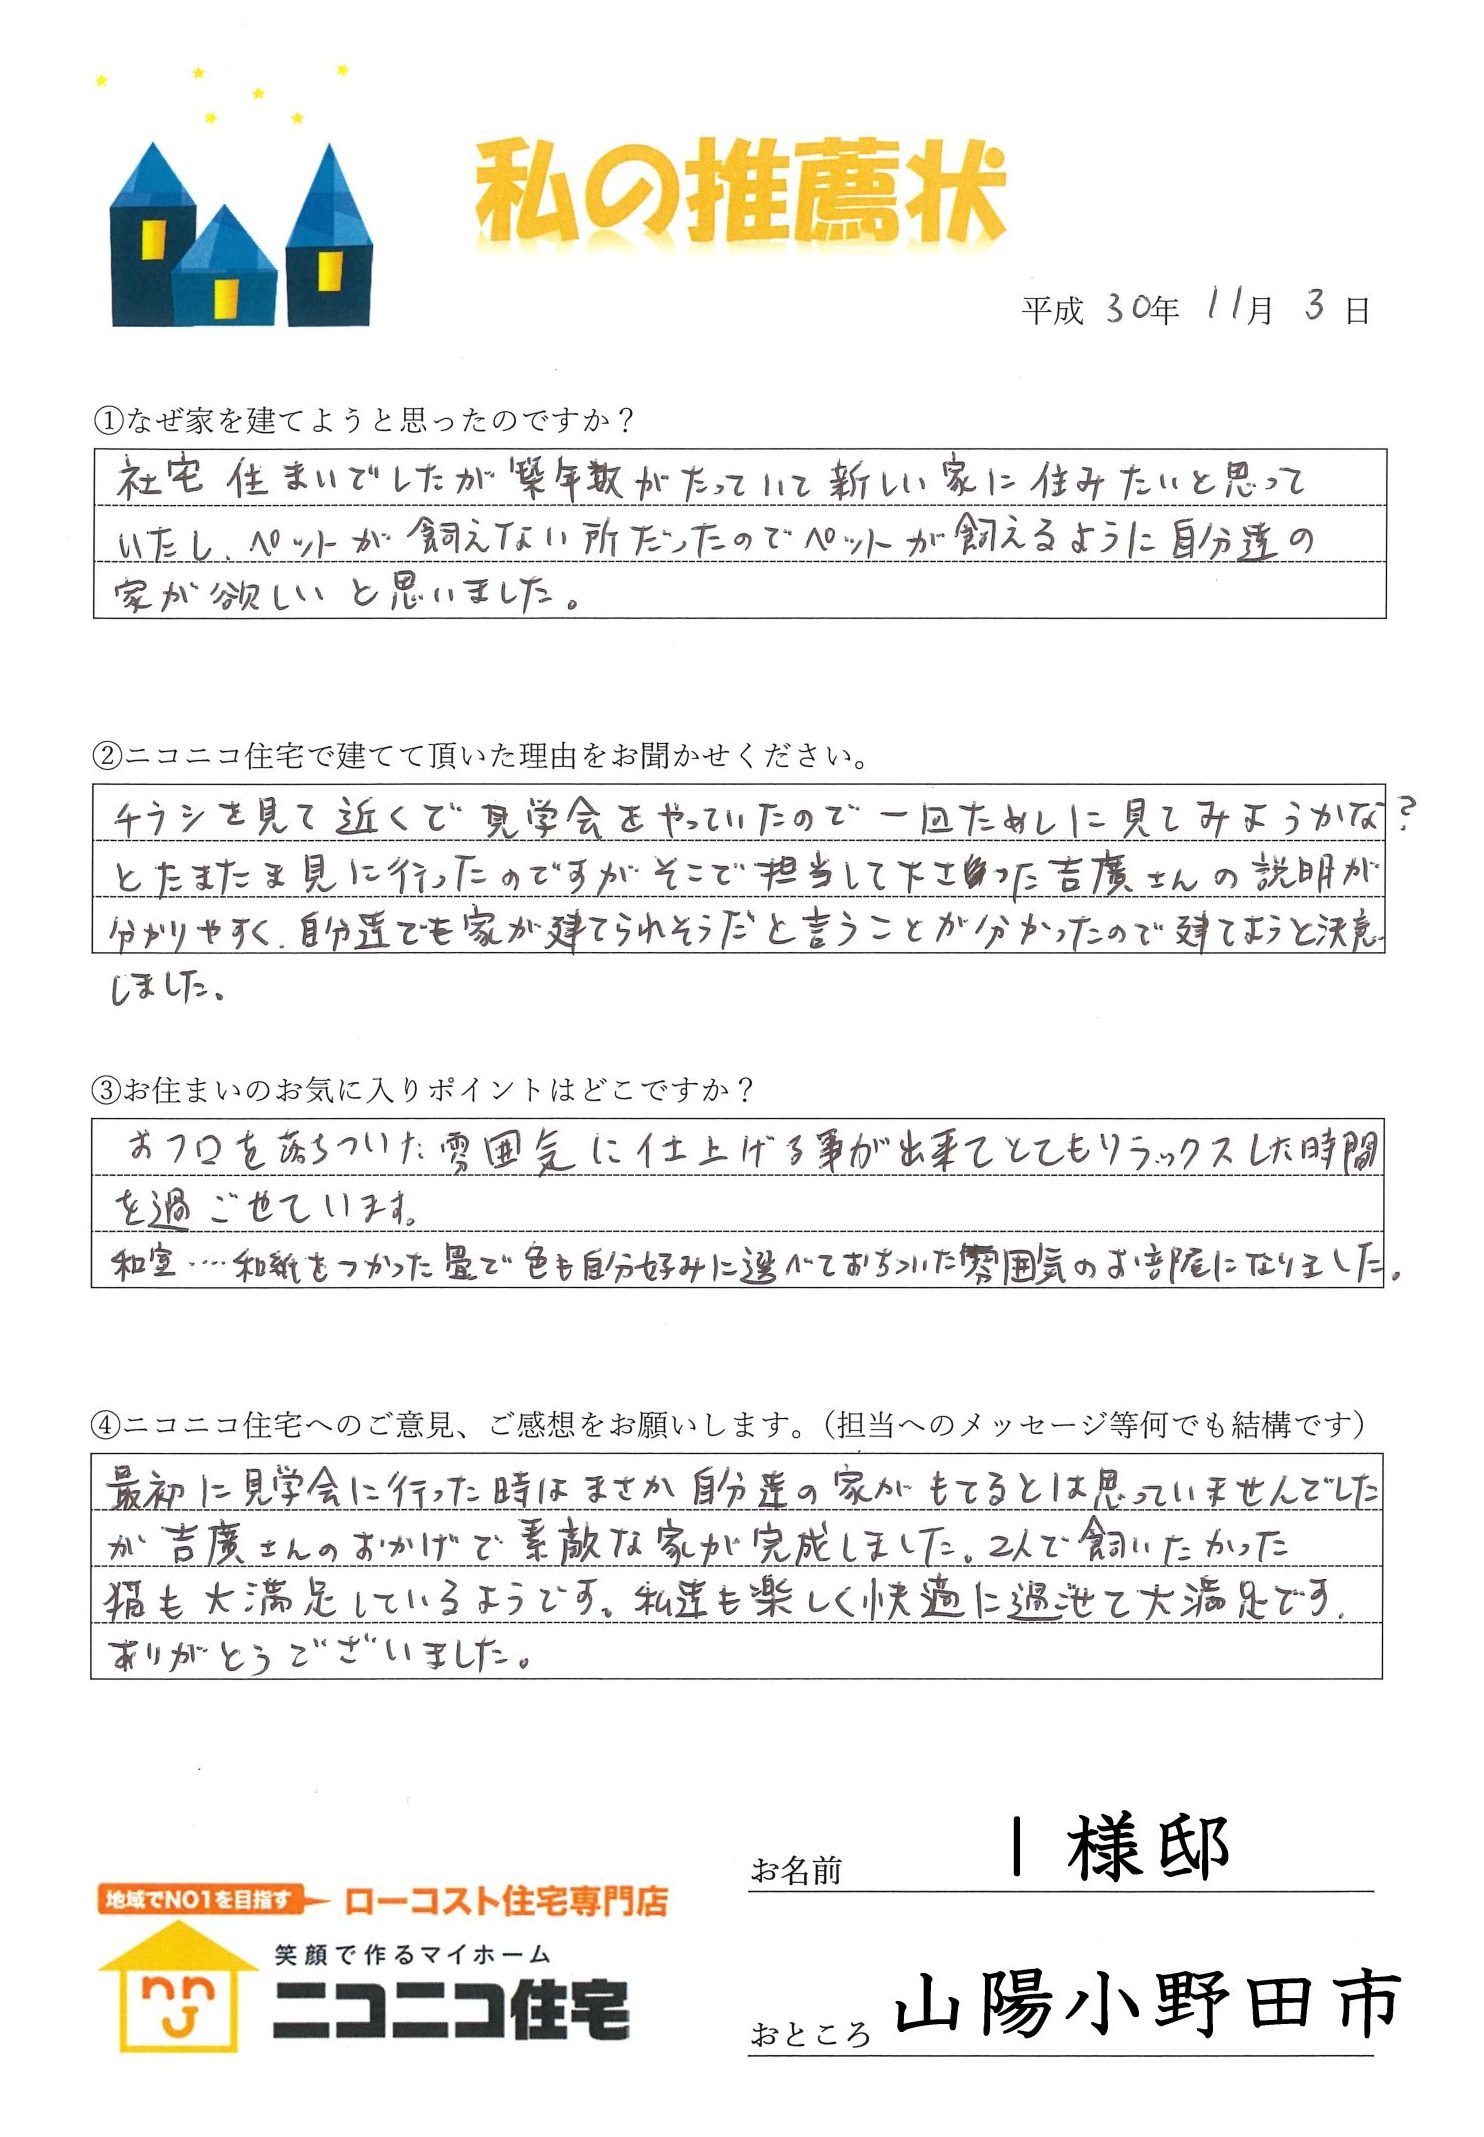 私の推薦状
平成 30年 11月 3日
①なぜ家を建てようと思ったのですか?
社宅住まいでしたが築年数がたっていて新しい家に住みたいと思って
いたし、ペットが飼えない所だったのでペットが飼えるように自分達の
家が欲しいと思いました。
②ニコニコ住宅で建てて頂いた理由をお聞かせください。
チラシを見て近くで見学会をやっていたので一回ためしに見てみようかな?
とたまたま見に行ったのですがそこで担当して下さった吉廣さんの説明が
分かりやすく、自分達でも家が建てられそうだと言うことが分かったので建てようと決意
しました。
③お住まいのお気に入りポイントはどこですか?
おフロを落ちついた雰囲気に仕上げる事が出来てとてもリラックスした時間
を過ごせています。
和室‥‥和紙をつかった畳で色も自分好みに選べておちついた雰囲気のお部屋になりました。
④ニコニコ住宅へのご意見、ご感想をお願いします。(担当へのメッセージ等何でも結構です)
最初に見学会に行った時はまさか自分達の家がもてるとは思っていませんでした
が吉廣さんのおかげで素敵な家が完成しました。2人で飼いたかった
猫も大満足しているようです。私達も楽しく快適に過せて大満足です。
ありがとうございました。
お名前 I 様邸
地域でNO1を目指す ローコスト住宅専門店
笑顔で作るマイホーム
ニコニコ住宅
おところ 山陽小野田市